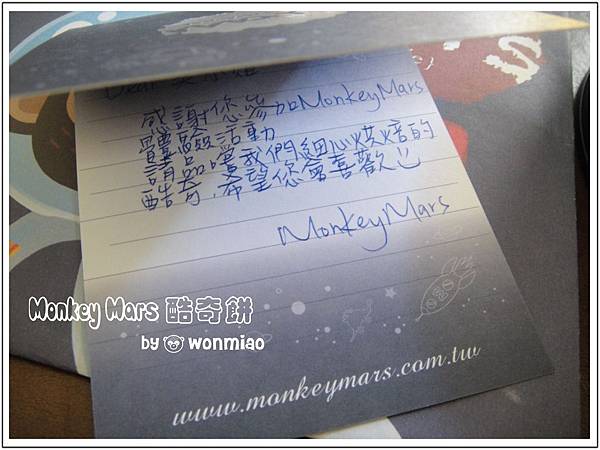 Dear
感謝你參加MonkeyMars
體驗活動
請品嚐我們細心烘焙的
酷奇,希望您會喜歡
MonkeyMars
Monkey Mars 酷奇餅
by wonmiao
www.monkeymars.com.tw